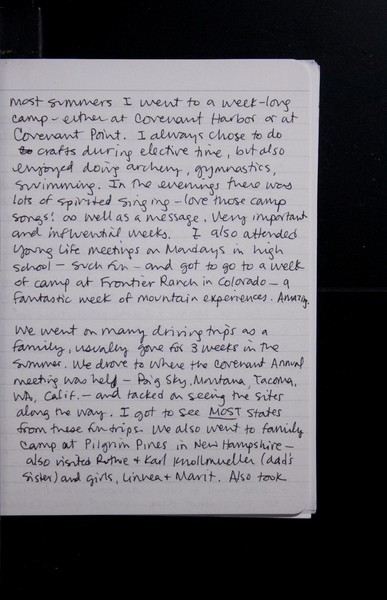 most summers I went to a week-long
camp - either at Covenant Harbor or at
Covenant Point. I always chose to do
crafts during elective time, but also
enjoyed doing archery, gymnastics,
swimming. In the evenings there was
lots of spirited singing - love those camp
songs! as well as a message. Very important
and influential weeks. I also attended
Young Life meetings on Mondays in high
school - such fun - and got to go to a week
of camp at Frontier Ranch in Colorado - a
fantastic week of mountain experiences. Amazing.
We went on many driving trips as a
family, usually gone for 3 weeks in the
summer. We drove to where the Covenant Annual
meeting was held - Big Sky, Montana, Tacoma,
WA, Calif. - and tacked on seeing the sites
along the way. I got to see MOST states
from these fun trips. We also went to family
camp at Pilgrim Pines in New Hampshire -
also visited Ruthie + Karl Knollmueller (dad's
sister) and girls, Linnea + Marit. Also took